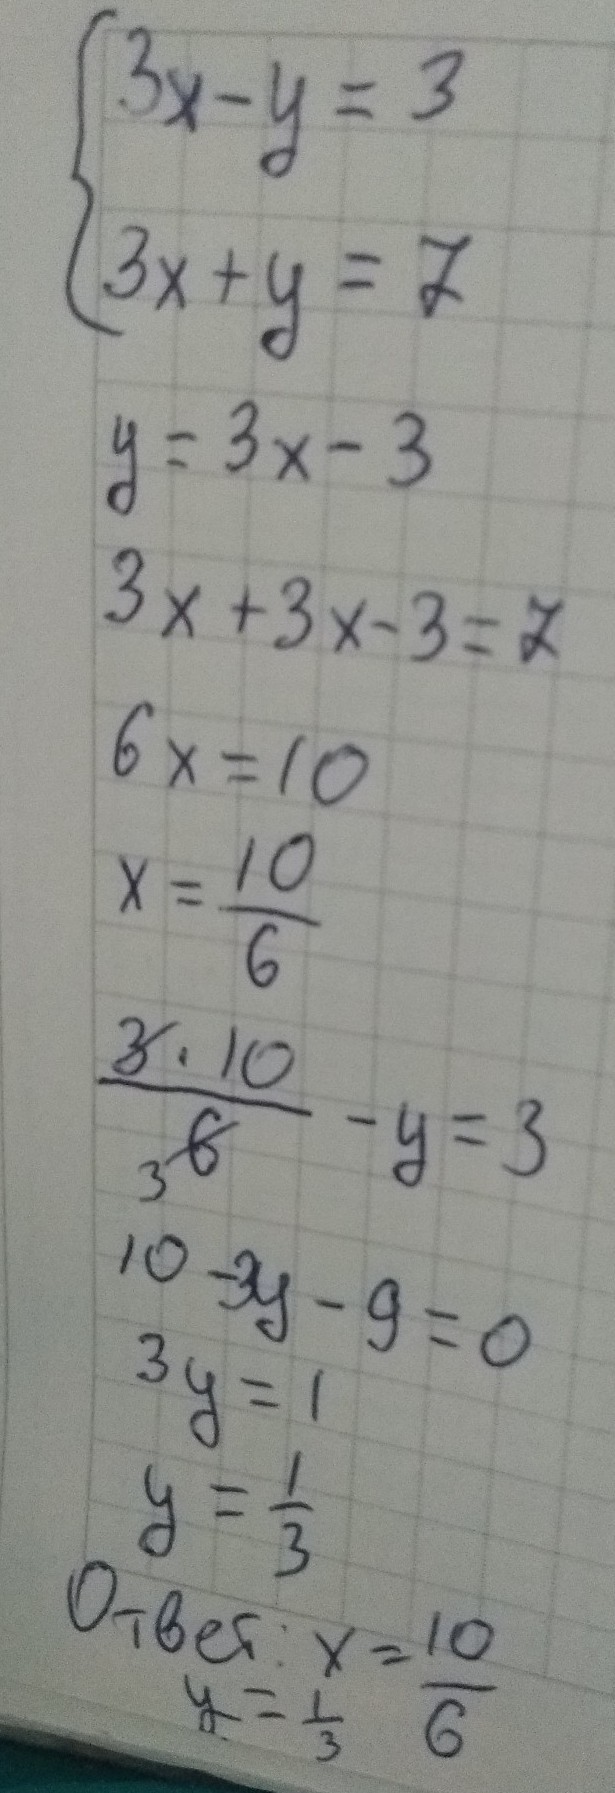 3x - y = 3
3x + y = 7
y = 3x - 3
3x + 3x - 3 = 7
6x = 10
x = 10/6
3 · 10 / 6 3 - y = 3
10 - 3y - 9 = 0
3y = 1
y = 1/3
Ответ: x = 10/6
y = 1/3